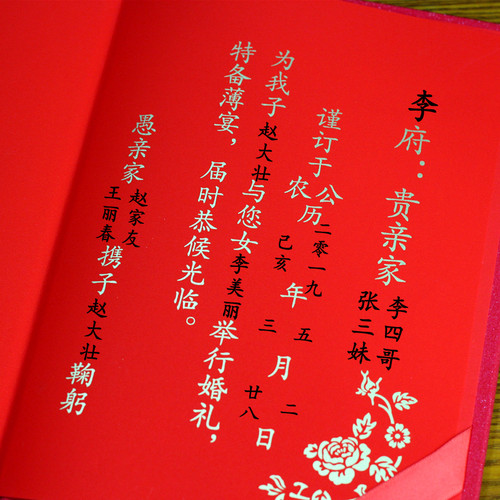 李府：贵亲家
李四哥
张三妹
谨订于公农历
二零一九
己亥
年
五
三
月
二
廿八
日
为我子赵大壮与您女李美丽举行婚礼，
特备薄宴，届时恭候光临。
愚亲家
赵家友
王丽春
携子赵大壮鞠躬